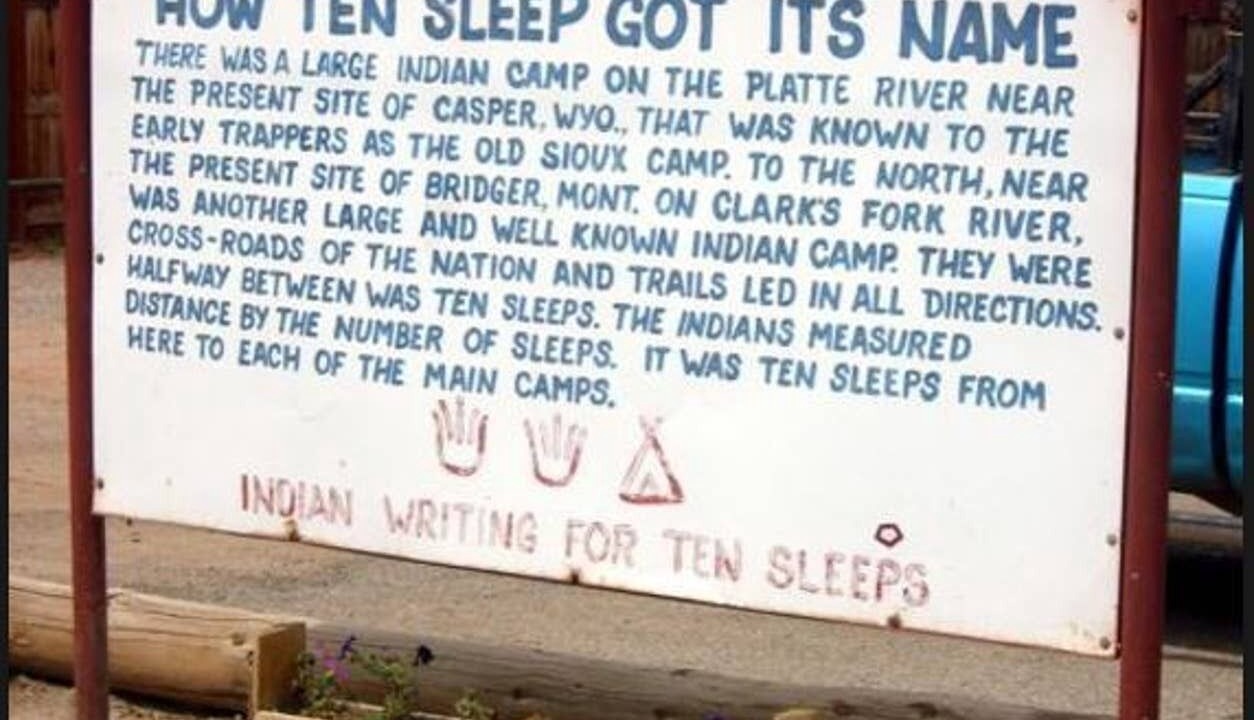 HOW TEN SLEEP GOT ITS NAME
THERE WAS A LARGE INDIAN CAMP ON THE PLATTE RIVER NEAR
THE PRESENT SITE OF CASPER, WYO., THAT WAS KNOWN TO THE
EARLY TRAPPERS AS THE OLD SIOUX CAMP. TO THE NORTH, NEAR
THE PRESENT SITE OF BRIDGER, MONT. ON CLARK'S FORK RIVER,
WAS ANOTHER LARGE AND WELL KNOWN INDIAN CAMP. THEY WERE
CROSS-ROADS OF THE NATION AND TRAILS LED IN ALL DIRECTIONS.
HALFWAY BETWEEN WAS TEN SLEEPS. THE INDIANS MEASURED
DISTANCE BY THE NUMBER OF SLEEPS. IT WAS TEN SLEEPS FROM
HERE TO EACH OF THE MAIN CAMPS.
INDIAN WRITING FOR TEN SLEEPS